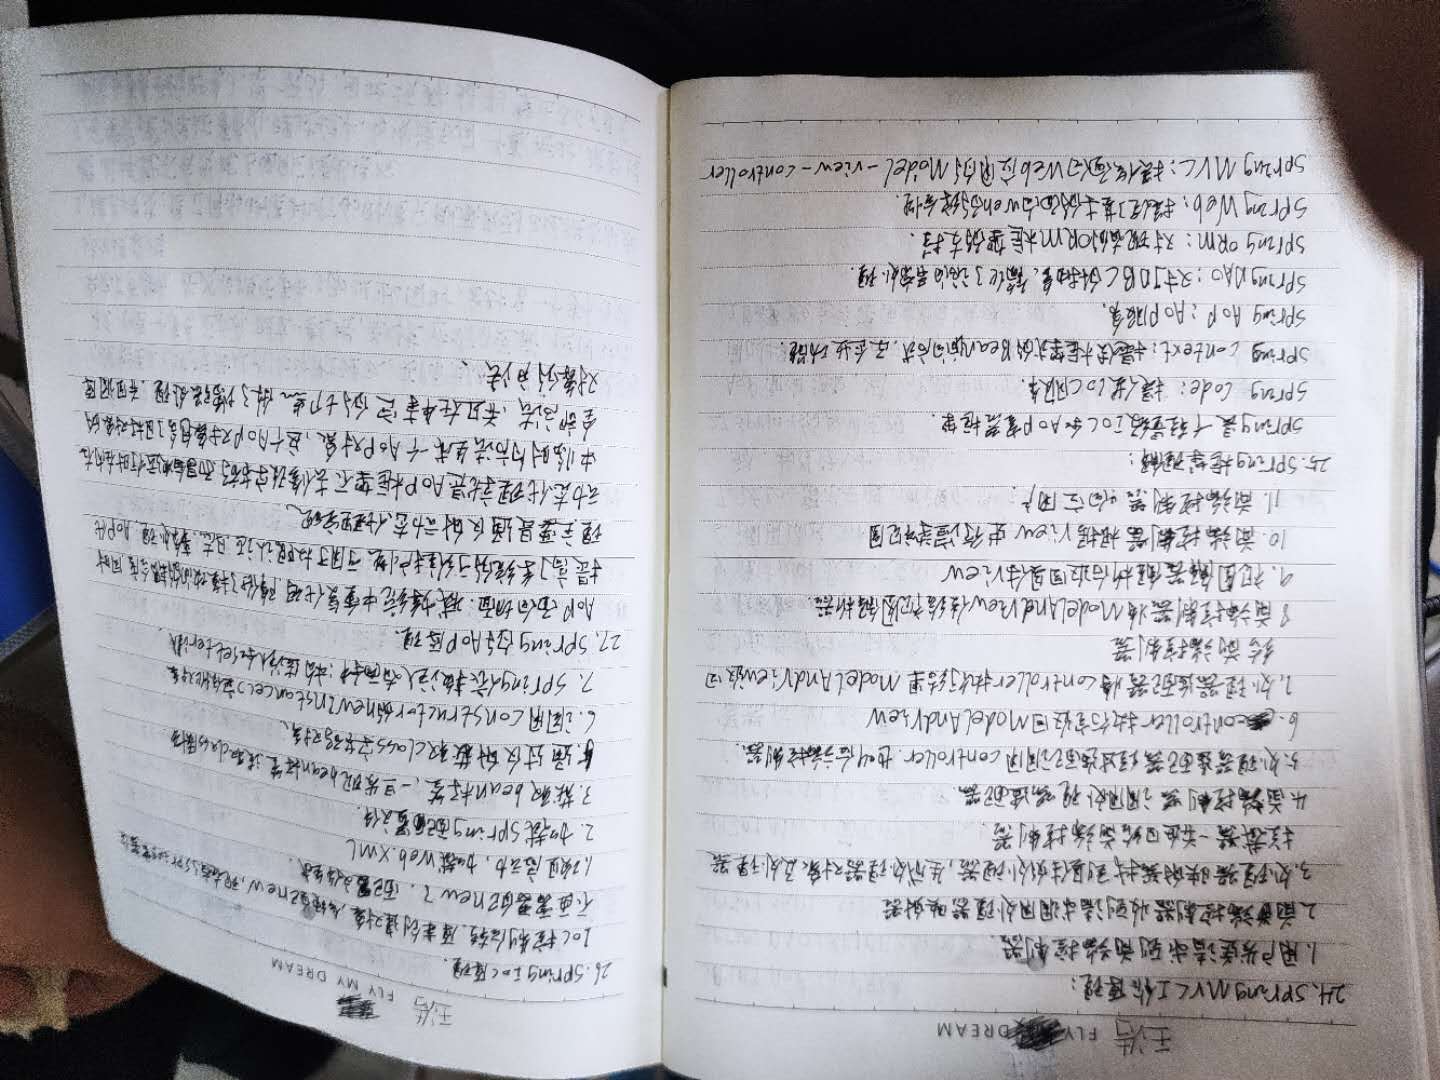 王浩 FLY DREAM
24. Spring MVC工作原理：
1. 用户发送请求到前端控制器
2. 前端控制器收到请求调用处理器映射器
3. 处理器映射器找到具体的处理器，生成处理器对象及处理器
拦截器一并返回给前端控制器
4. 前端控制器调用处理器适配器
5. 处理器适配器经过适配调用controller 也叫后端控制器.
6. controller执行完返回ModelAndView
7. 处理器适配器将controller执行结果ModelAndView返回
给前端控制器
8. 前端控制器将ModelAndView传给视图解析器.
9. 视图解析器解析后返回具体View
10. 前端控制器根据View进行渲染视图
11. 前端控制器响应用户
25. Spring框架理解：
Spring是一个轻量级IOC和AOP容器框架.
Spring Code：提供IOC服务
Spring Context：提供框架式的Bean访问方式，及企业功能.
Spring AOP：AOP服务.
Spring DAO：对JDBC的抽象，简化了访问异常处理.
Spring ORM：对现有的ORM框架的支持.
Spring Web：提供了基本的面向web的综合特性.
Spring MVC：提供面向Web应用的Model-view-controller
王浩 FLY MY DREAM
26. Spring IOC原理.
IOC控制反转，原来创建对象，必须自己new，现在
不再需要自己new了，配置
1. 项目启动，加载Web.XML
2. 加载Spring配置文件
3. 获取bean标签，一旦发现bean标签，读取class属性
5. 通过反射获取class字节码对象.
6. 调用Constructor的newInstance()实例化对象
7. Spring依赖注入有两种：构造注入和setter注入
27. Spring的AOP原理.
AOP面向切面：减少系统中重复代码，降低了模块间的耦合度，同时
提高了系统的可维护性，可用于权限认证、日志、事务处理，AOP代
理主要是通过动态代理实现
动态代理就是AOP框架不会修改字节码，而是每次运行时在内存
中临时为方法生成一个AOP对象，这个AOP对象包含了目标对象的
全部方法，并且在特定的切点做了增强处理，并回调原
对象的方法.